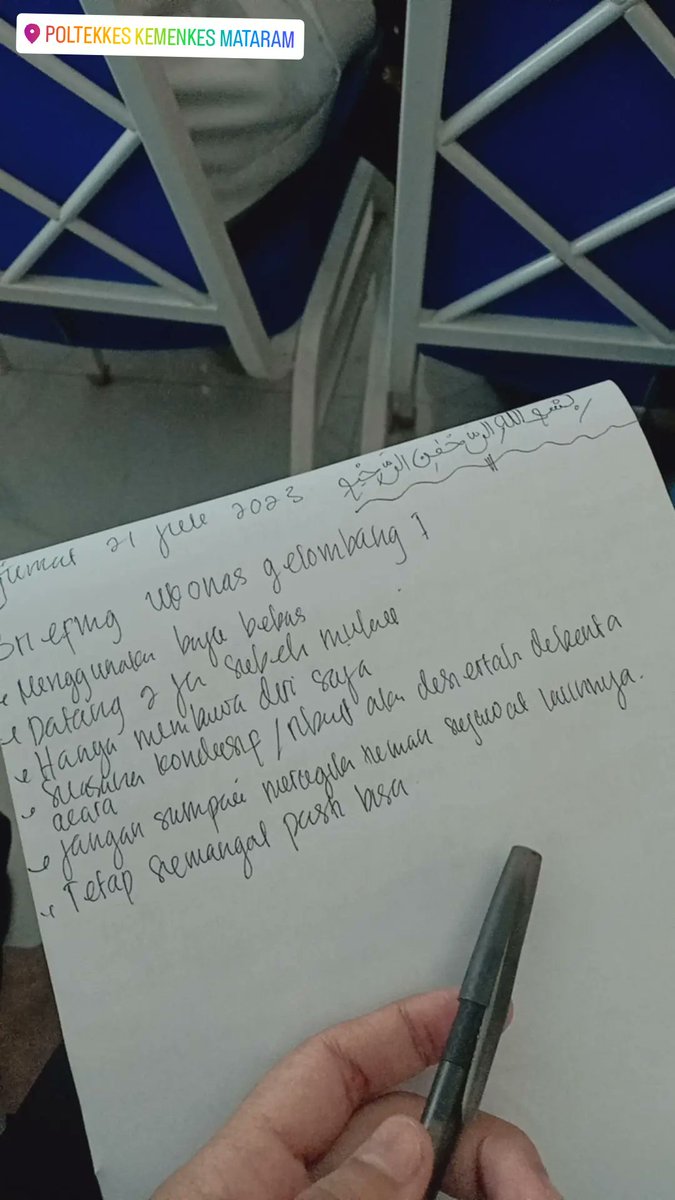 POLTEKKES KEMENKES MATARAM
بسم الله الرحمن الرحيم
Jumat 21 Juli 2023
Briefing UKOMNAS gelombang I
Menggunakan baju bebas
Datang 2 jam sebelum mulai
Hanya membawa diri saja
Suasana kondusif /ribut akan disertai berita
acara
Jangan sampai merugikan teman sejawat lainnya.
Tetap semangat pasti bisa